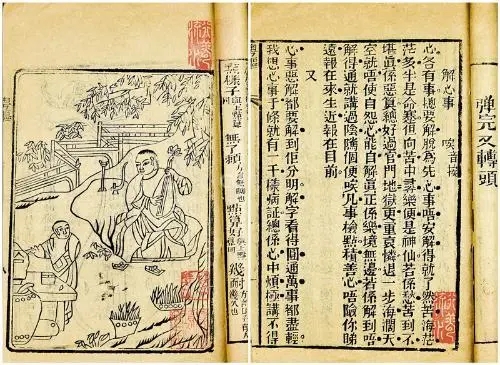 弹完又轉頭
解心事　唉音挨
心各有事總要解脫為先心事唔安解得就了然苦海茫
茫多半是命蹇但向苦中尋樂便是神仙若係愁苦到不
堪真係惡算總好過官門地獄更重哀憐退一步海濶天
空就唔使自怨心能自解真正係樂境無邊若係解到唔
解得通就講過陰隲個便唉凡事檢點積善心唔險你睇
遠報在來生近報在目前
又
心事惡解都要解到佢分明解字看得圓通萬事都盡輕
我想心事千條就有一千樣病証總係心中煩極講不得
樣子
無了賴
點算好
幾耐